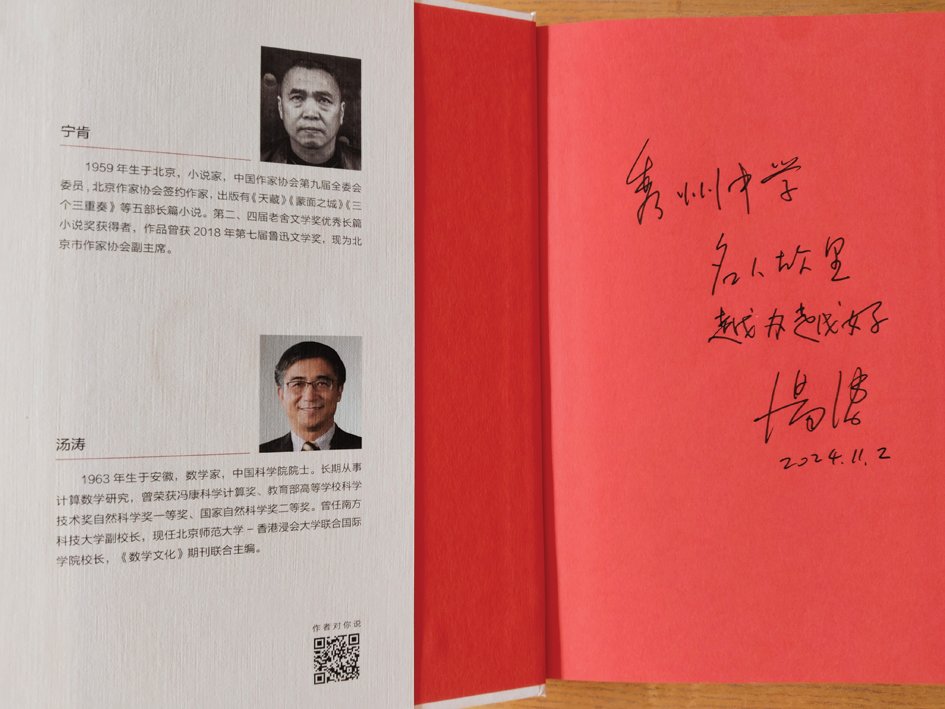 宁肯
1959 年生于北京，小说家，中国作家协会第九届全委会
委员，北京作家协会签约作家，出版有《天藏》《蒙面之城》《三
个三重奏》等五部长篇小说。第二、四届老舍文学奖优秀长篇
小说奖获得者，作品曾获 2018 年第七届鲁迅文学奖，现为北
京市作家协会副主席。
汤涛
1963 年生于安徽，数学家，中国科学院院士。长期从事
计算数学研究，曾荣获冯康科学计算奖、教育部高等学校科学
技术奖自然科学奖一等奖、国家自然科学奖二等奖。曾任南方
科技大学副校长，现任北京师范大学－香港浸会大学联合国际
学院校长，《数学文化》期刊联合主编。
作者对你说
秀州中学
名人故里
越办越好
汤涛
2024.11.2